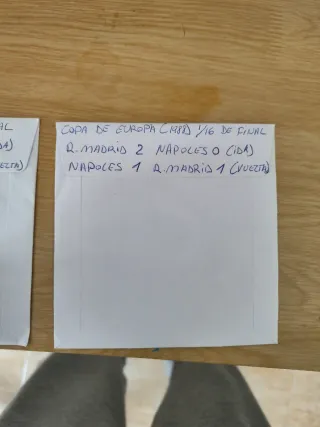 COPA DE EUROPA (1988) 1/16 DE FINAL
R. MADRID 2 NAPOLES 0 (IDA)
NAPOLES 1 R. MADRID 1 (VUELTA)
AL
A)
ELTA)